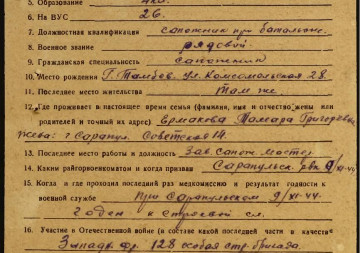 5. Образование
6. На ВУС 26.
7. Должностная квалификация сапожник при батальоне.
8. Военное звание рядовой.
9. Гражданская специальность сапожник
10. Место рождения Г. Тамбов. Ул. Комсомольская 28
11. Последнее место жительства Там же.
12. Где проживает в настоящее время семья (фамилия, имя и отчество жены или
родителей и точный их адрес) Ермакова Тамара Григорьевна
г Сарапул. Советская 14.
13. Последнее место работы и должность Зав. сапож. мастер
14. Каким райгорвоенкоматом и когда призван Сарапульск. рвк 9/XI-44.
15. Когда и где проходил последний раз медкомиссию и результат годности к
военной службе При Сарапульском 9/XI-44.
годен к строевой сл.
16. Участие в Отечественной войне (в составе какой последней части и в качестве
Западн. фр. 128 особая стр. бригада.